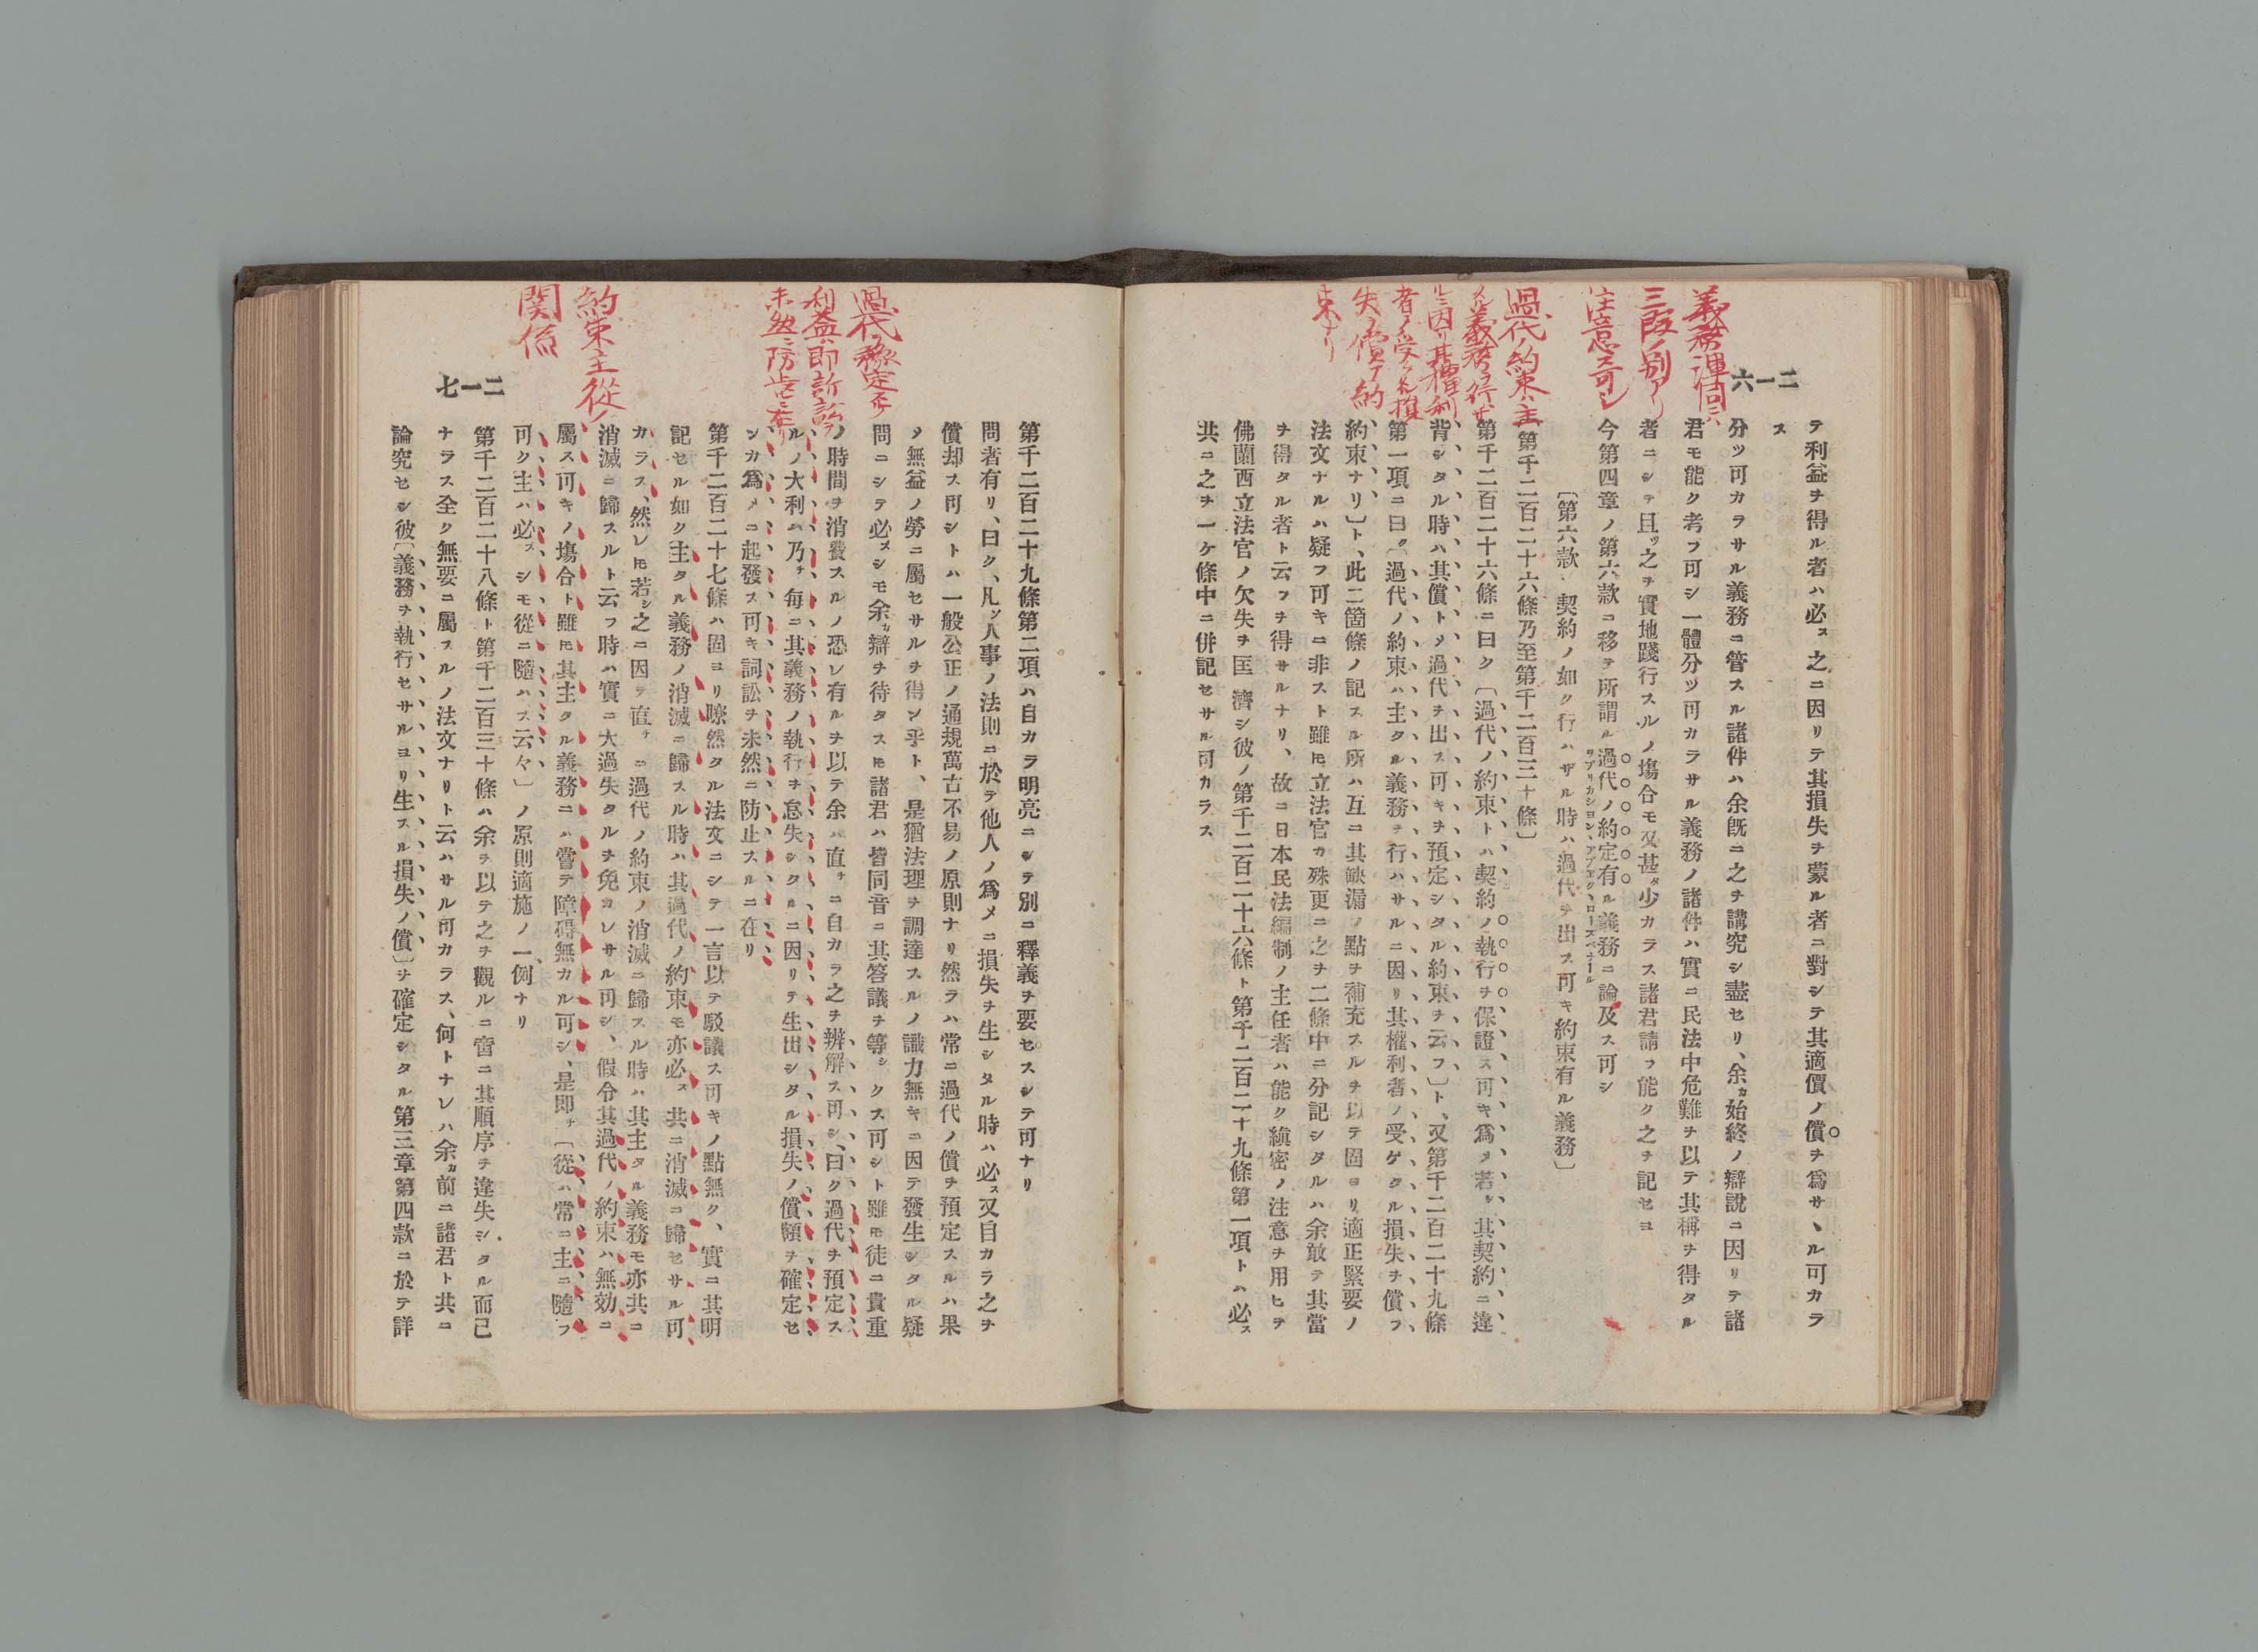 二一六
義務運用ニハ
三段ノ別アリ
注意ス可シ
過代ノ約束ハ主
タル義務ヲ行ハサ
ルニ因リ其権利
者ノ受ケタル損
失ヲ償フノ約
束ナリ
テ利益ヲ得ル者ハ必ス之ニ因リテ其損失ヲ蒙ル者ニ對シテ其適價ノ償ヲ爲サヽル可カラ
ス
分ツ可カラサル義務ニ管スル諸件ハ余既ニ之ヲ講究シ盡セリ、余カ始終ノ辯說ニ因リテ諸
君モ能ク考フ可シ一體分ツ可カラサル義務ノ諸件ハ實ニ民法中危難ヲ以テ其稱ヲ得タル
者ニシテ且ツ之ヲ實地踐行スルノ塲合モ又甚タ少カラス諸君請フ能ク之ヲ記セヨ
今第四章ノ第六款ニ移テ所謂ル過代ノ約定有ル義務ニ論及ス可シ
〔第六款、契約ノ如ク行ハザル時ハ過代ヲ出ス可キ約束有ル義務〕
〔第千二百二十六條乃至第千二百三十條〕
第千二百二十六條ニ曰ク〔過代ノ約束トハ契約ノ執行ヲ保證ス可キ爲メ若シ其契約ニ違
背シタル時ハ其償トメ過代ヲ出ス可キヲ預定シタル約束ヲ云フ〕ト、又第千二百二十九條
第一項ニ曰ク〔過代ノ約束ハ主タル義務ヲ行ハサルニ因リ其權利者ノ受ケタル損失ヲ償フ
約束ナリ〕ト、此二箇條ノ記スル所ハ互ニ其缺漏ノ點ヲ補充スルヲ以テ固ヨリ適正緊要ノ
法文ナルハ疑フ可キニ非スト雖モ立法官カ殊更ニ之ヲ二條中ニ分記シタルハ余敢テ其當
ヲ得タル者ト云フヲ得サルナリ、故ニ日本民法編制ノ主任者ハ能ク縝密ノ注意ヲ用ヒテ
佛蘭西立法官ノ欠失ヲ匡濟シ彼ノ第千二百二十六條ト第千二百二十九條第一項トハ必ス
共ニ之ヲ一ケ條中ニ併記セサル可カラス
二一七
過代ヲ豫定スルノ
利益ハ即訴訟ヲ
未然ニ防止スルニ在リ
約束主從ノ
関係
第千二百二十九條第二項ハ自カラ明亮ニシテ別ニ釋義ヲ要セスシテ可ナリ
問者有リ、曰ク、凡ソ人事ノ法則ニ於テ他人ノ爲メニ損失ヲ生シタル時ハ必ス又自カラ之ヲ
償却ス可シトハ一般公正ノ通規萬古不易ノ原則ナリ然ラハ常ニ過代ノ償ヲ預定スルハ果
ノ無益ノ勞ニ屬セサルヲ得ン乎ト、是猶法理ヲ調達スルノ識力無キニ因テ發生シタル疑
問ニシテ必スシモ余カ辯ヲ待タスモ諸君ハ皆同音ニ其答議ヲ等シクス可シト雖モ徒ニ貴重
ノ時間ヲ消費スルノ恐レ有ルヲ以テ余ハ直チニ自カラ之ヲ辨解ス可シ、曰ク過代ヲ預定ス
ルノ大利ハ乃チ每ニ其義務ノ執行ヲ怠失シタルニ因リテ生出シタル損失ノ償額ヲ確定セ
シカ爲メニ起發ス可キ詞訟ヲ未然ニ防止スルニ在リ
第千二百二十七條ハ固ヨリ瞭然タル法文ニシテ一言以テ駁議ス可キノ點無ク、實ニ其明
記セル如ク主タル義務ノ消滅ニ歸スル時ハ其過代ノ約束モ亦必ス共ニ消滅ニ歸セサル可
カラス、然レモ若シ之ニ因テ直チニ過代ノ約束ノ消滅ニ歸スル時ハ其主タル義務モ亦共ニ
消滅ニ歸スルト云フ時ハ實ニ大過失タルヲ免カレサル可シ、假令其過代ノ約束ハ無効ニ
屬ス可キノ塲合ト雖モ其主タル義務ニハ嘗テ障碍無カル可シ、是即チ〔從ハ常ニ主ニ隨フ
可ク主ハ必スシモ從ニ隨ハス云々〕ノ原則適施ノ一例ナリ
第千二百二十八條ト第千二百三十條ハ余ヲ以テ之ヲ觀ルニ啻ニ其順序ヲ違失シタル而已
ナラス全ク無要ニ屬スルノ法文ナリト云ハサル可カラス、何トナレハ余カ前ニ諸君ト共ニ
論究セシ彼〔義務ヲ執行セサルヨリ生スル損失ノ償〕ヲ確定シタル第三章第四款ニ於テ詳